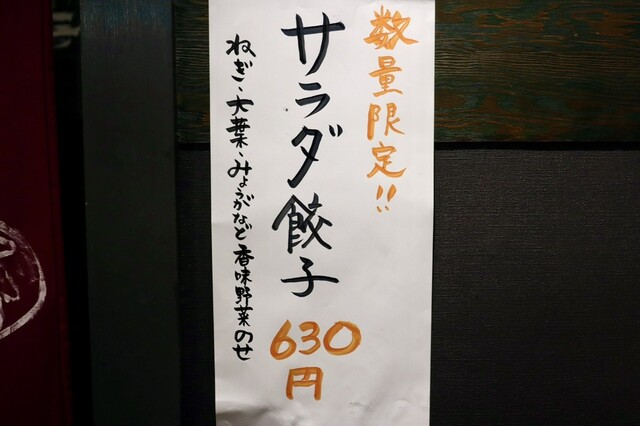 数量限定!!
サラダ餃子
630
円
ねぎ、大葉、みょうがなど香味野菜のせ